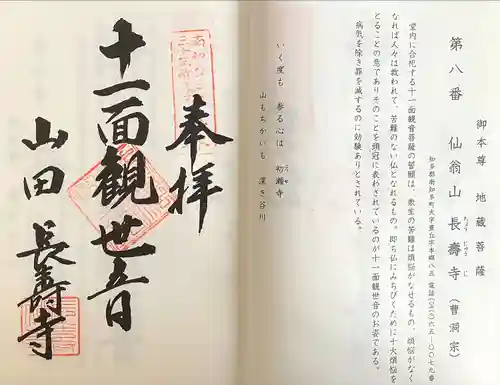 第八番 仙翁山 長壽寺(曹洞宗)
ちょう じゅう じ
御本尊 地蔵菩薩
知多郡南知多町大字豊丘字本郷八五 電話(〇五六九)六五―〇〇七九番
堂内に合祀する十一面観音菩薩の誓願は、衆生の苦難は煩悩がなせるもの、煩悩がなく
なれば人々は救われて、苦難のない仏となれるもの。即ち仏にみちびくために十大煩悩を
とることの意でありそのことを頭冠に表わされているのが十一面観世音のお姿である。
病気を除き罪を滅するのに効験ありとされている。
いく度も 参る心は 初瀬寺
山もちかいも 深き谷川
奉拝
十一面観世音
山田 長壽寺